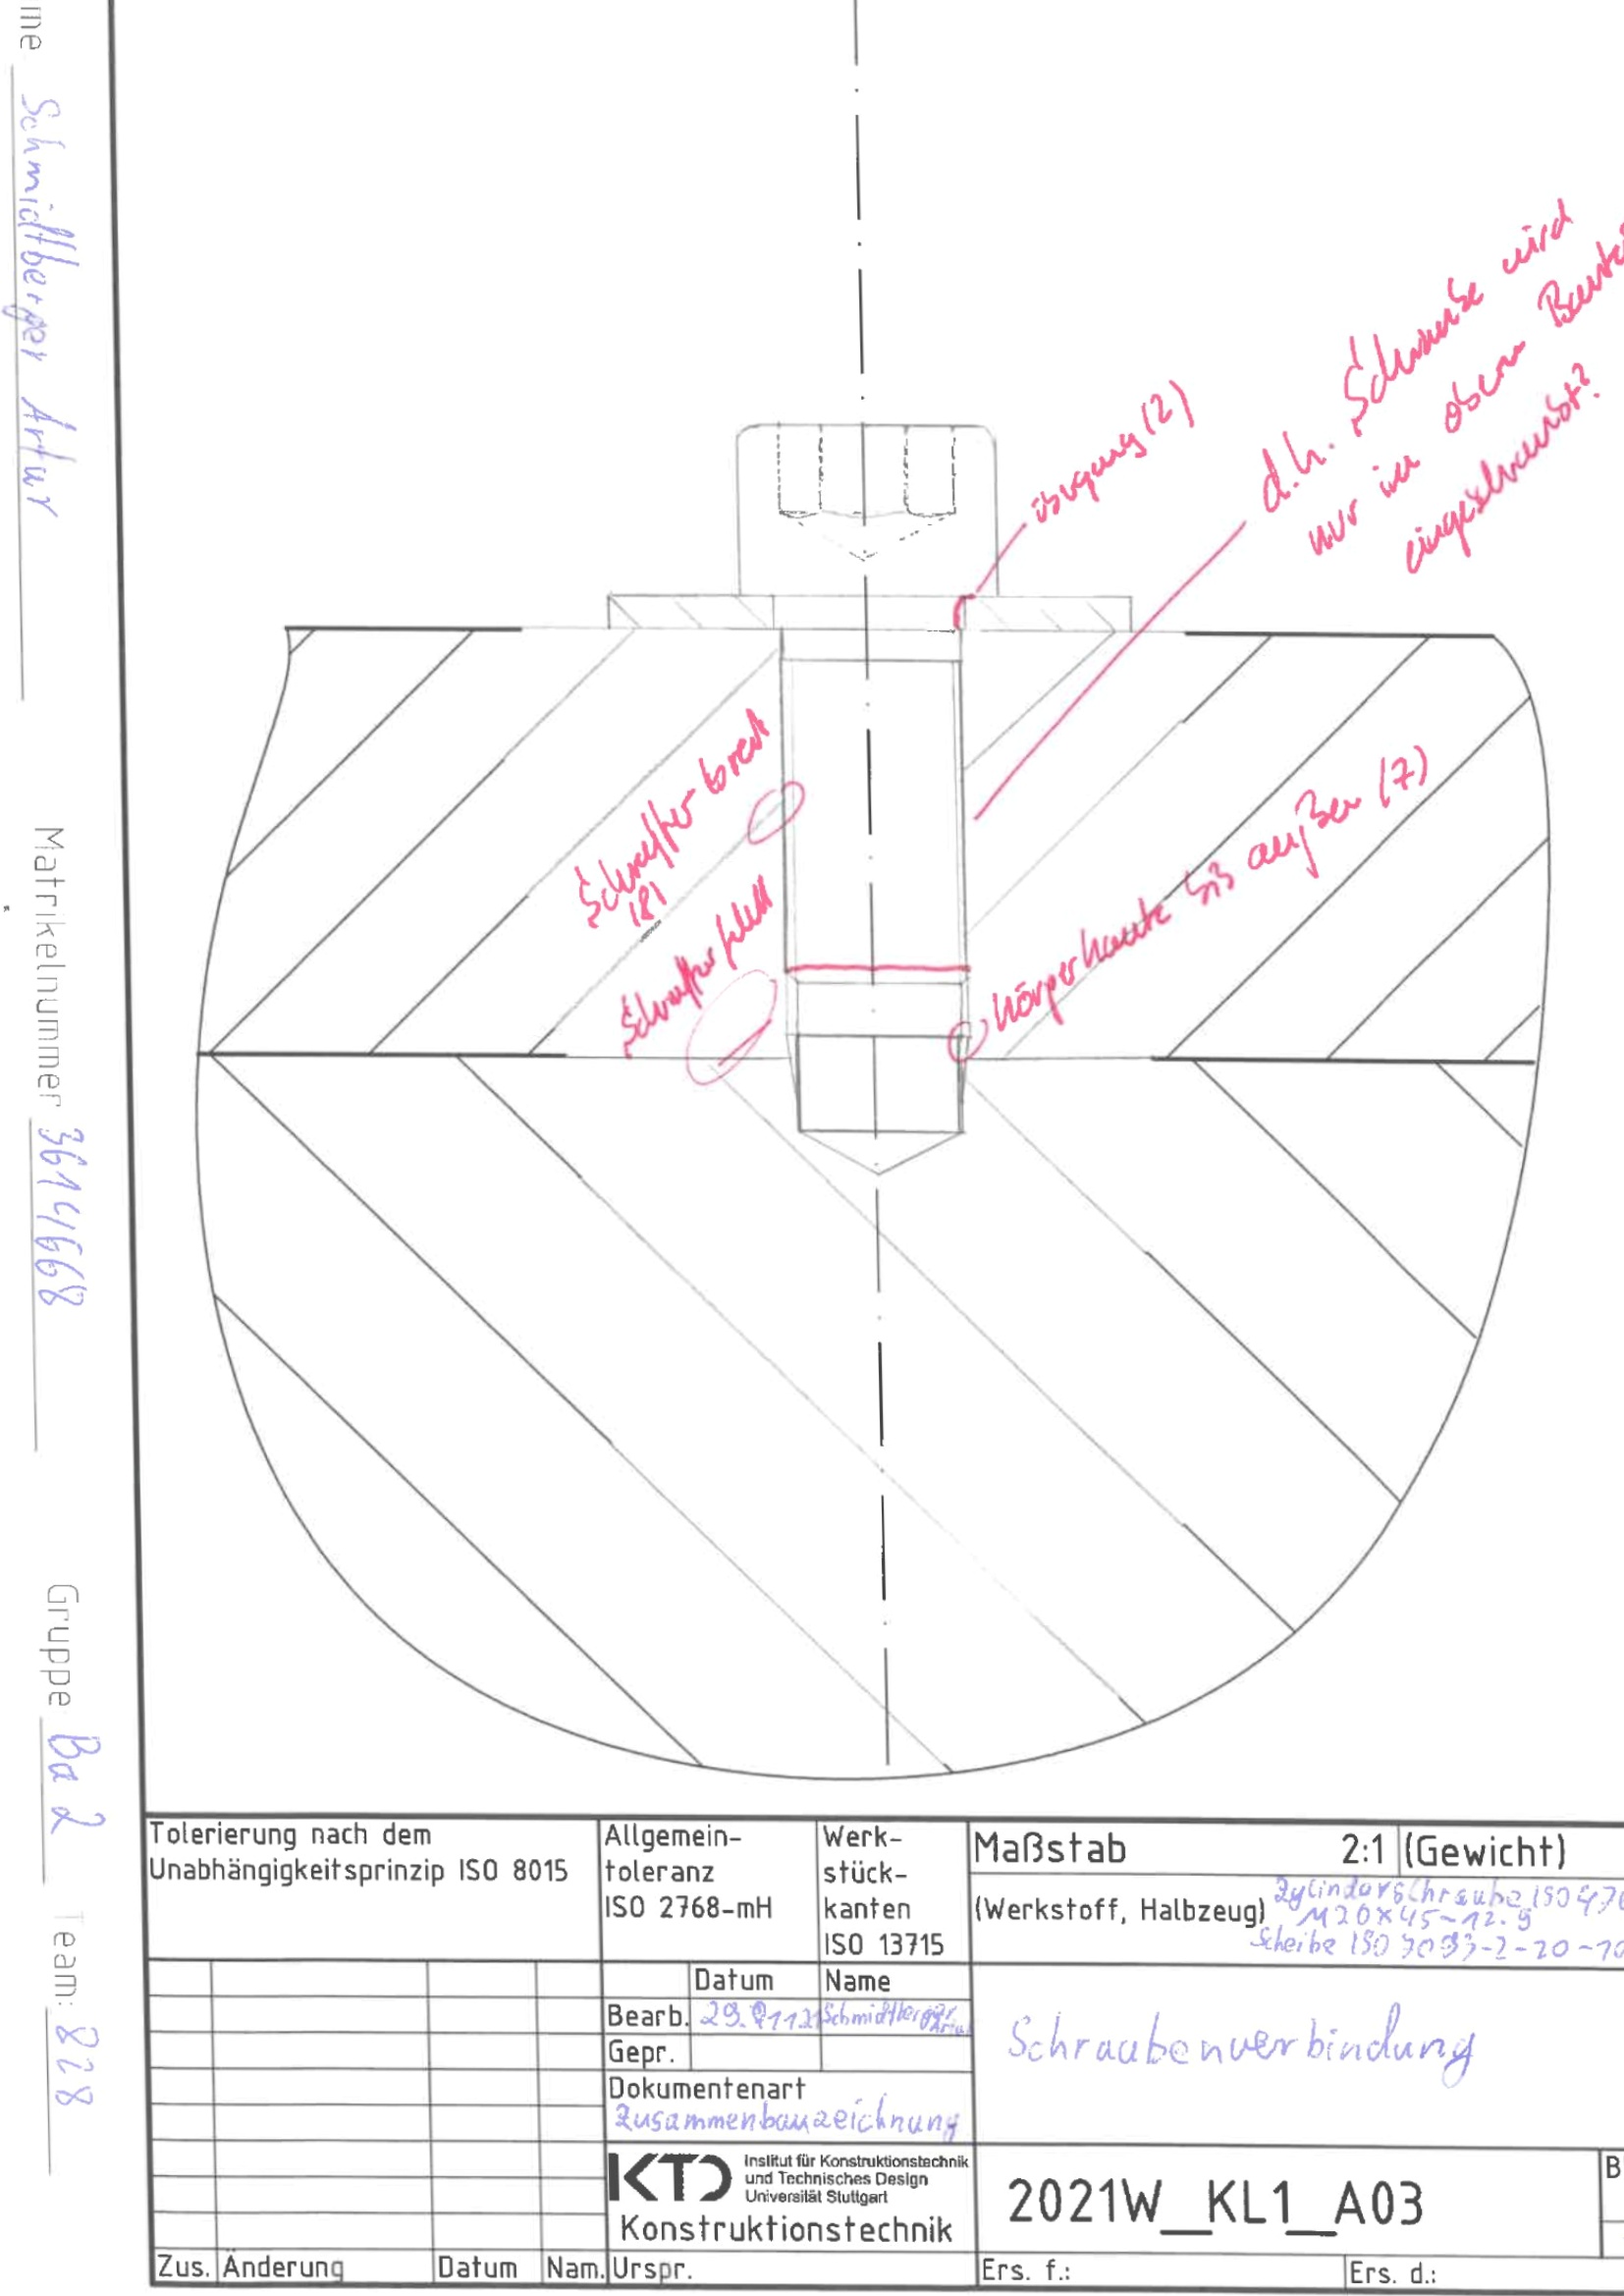 me Schmidtberger Artur
Matrikelnummer 3614668
Gruppe Ba 2
Team: 828
übergang (2)
d.h. Schraube wird
nur in oberem
eingeschraubt?
Schraffur breit
(8)
Schraffur fehlt
Körperkante bis außen (7)
Tolerierung nach dem
Unabhängigkeitsprinzip ISO 8015
Allgemein-
toleranz
ISO 2768-mH
Werk-
stück-
kanten
ISO 13715
Maßstab 2:1 (Gewicht)
(Werkstoff, Halbzeug)
Zylinderschraube ISO 476
M20x45-12.9
Scheibe ISO 7093-2-20-
Datum Name
Bearb. Schmidtberger
Gepr.
Dokumentenart
Zusammenbauzeichnung
Schraubenverbindung
KTD
Institut für Konstruktionstechnik
und Technisches Design
Universität Stuttgart
Konstruktionstechnik
2021W_KL1_A03
B
Zus. Änderung Datum Nam. Urspr. Ers. f.: Ers. d.: